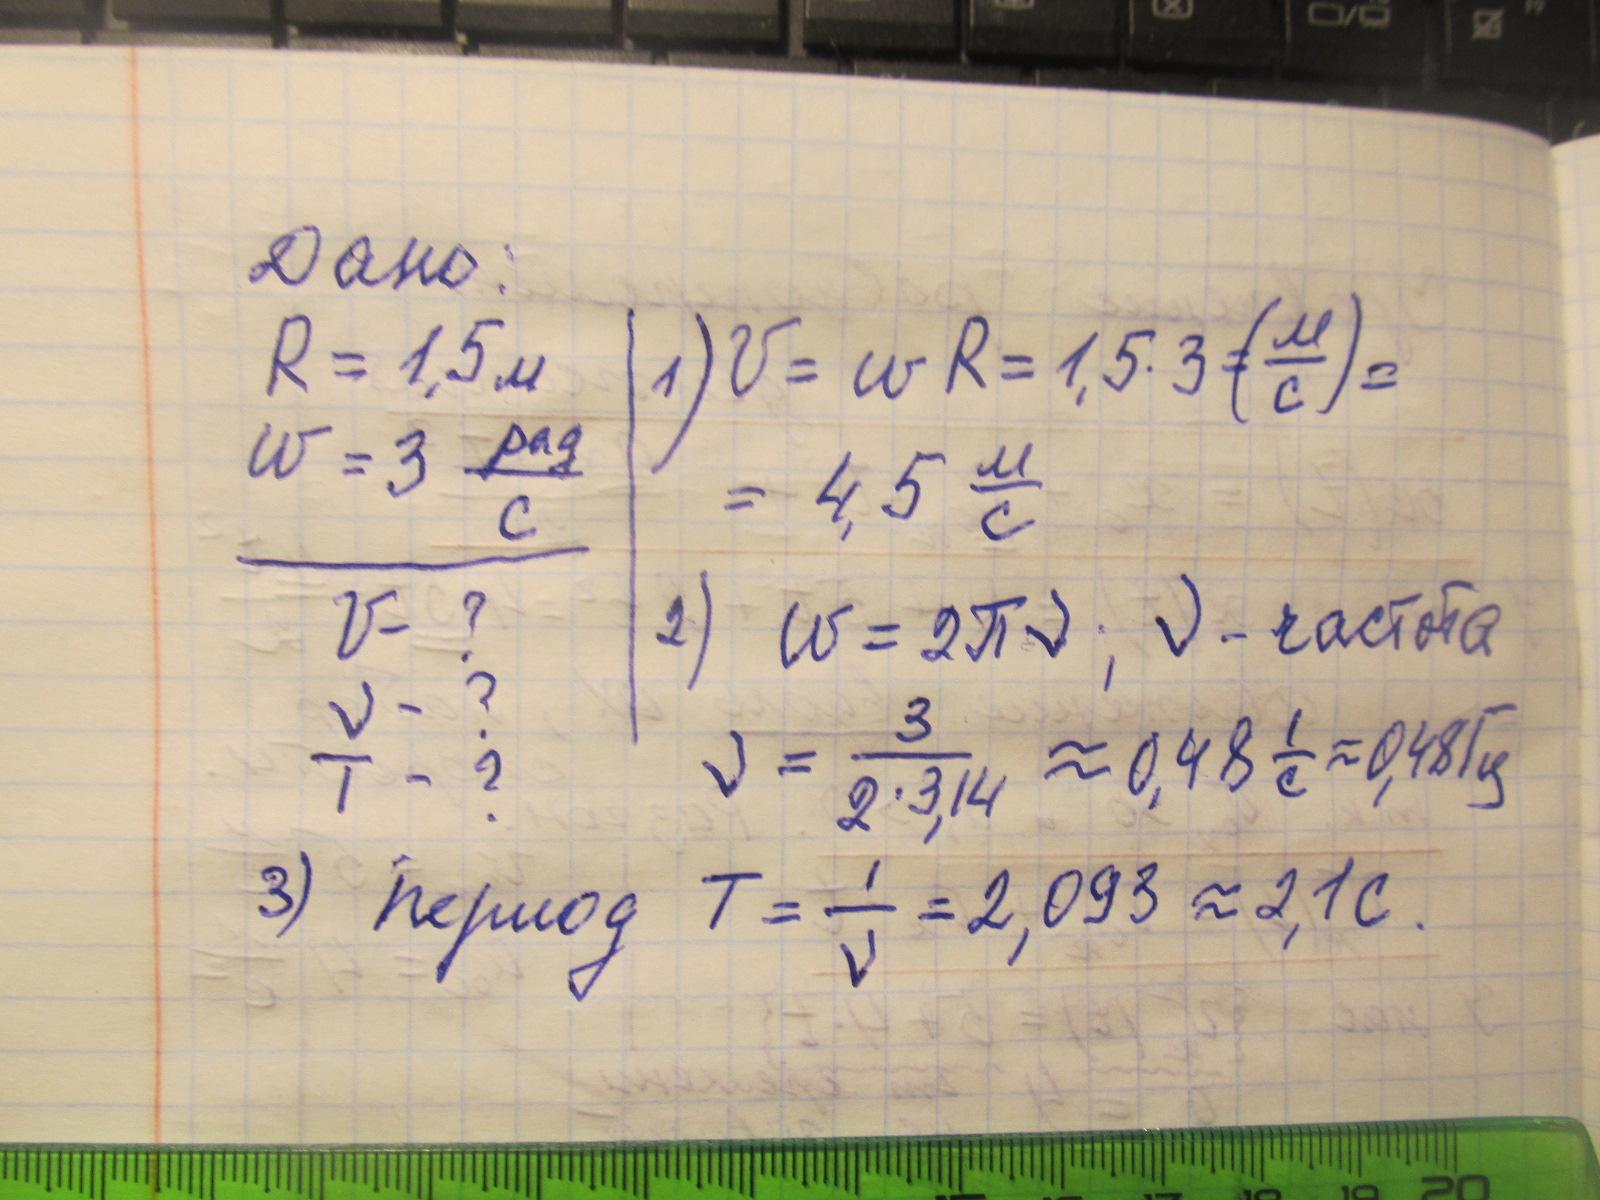 Дано:
R = 1,5 м
w = 3 рад/с
V - ?
ν - ?
T - ?
1) V = w R = 1,5 · 3 = (м/с) =
= 4,5 м/с
2) w = 2πν; ν - частота
ν = 3/(2·3,14) ≈ 0,48 1/с ≈ 0,48 Гц
3) Период T = 1/ν = 2,093 ≈ 2,1 с.
17 18 19 20